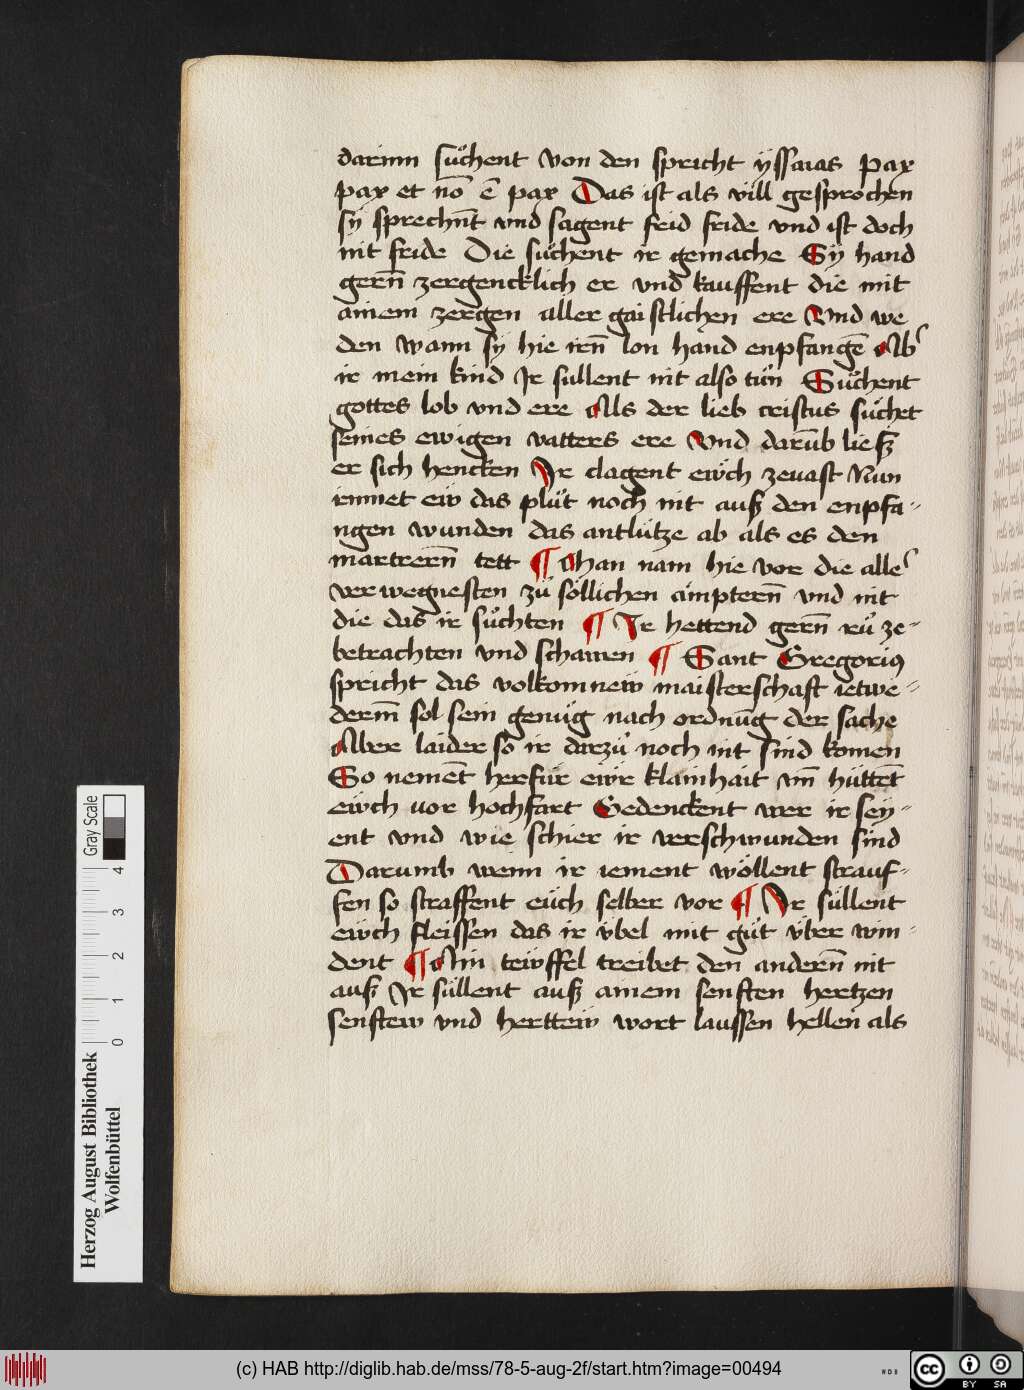 darinn sůchent von den spricht ÿssaias Pax
pax et nō ē pax Das ist als vill gesprochen
sÿ sprechñt vnd sagent feid fride vnd ist doch
nit fride Die sůchent ir gemache Sÿ hand
gern̄ zergencklich er vnd kauffent die mit
ainem zergen aller gaistlichen ere Vnd we
den wann sÿ hie iren̄ lon hand enpfangē Ab
ir mein kind Ir sullent nit also tůn Sůchent
gottes lob vnd ere Als der lieb cristus sůchet
seines ewigen vatters ere Vnd darūb ließ
er sich hencken Ir clagent ewch zevast Nun
rinnet ew das plůt noch nit auß den enpfa-
ngen wunden das antlütze ab als es den
martrern̄ tett ¶ Man nam hie vor die alle
verwegnesten zů söllichen ämptern̄ vnd nit
die das ir sůchten ¶ Ir hettend gern̄ rů ze-
betrachten vnd schawen ¶ Sant Gregorius
spricht das volkomnew maisterschaft ietwe-
derm̄ sol sein genůg nach ordnūg der sache
Aber laider so ir darzů noch nit sind komen
So nemēt herfür ewr klainhait vn̄ hüttēt
ewch vor hochfart Gedenckent wer ir sey-
ent vnd wie schier ir verschwunden sind
Darumb wenn ir iement wöllent strauf-
fen so straffent euch selber vor ¶ Ir süllent
ewch fleissen das ir übel mit gůt über win-
dent ¶ Ain tewffel treibet den anderen̄ nit
auß Ir süllent auß ainem senften hertzen
senftew vnd herttew wort laussen hellen als
Gray Scale
0 1 2 3 4
Herzog August Bibliothek
Wolfenbüttel
(c) HAB http://diglib.hab.de/mss/78-5-aug-2f/start.htm?image=00494
WDB
cc BY SA